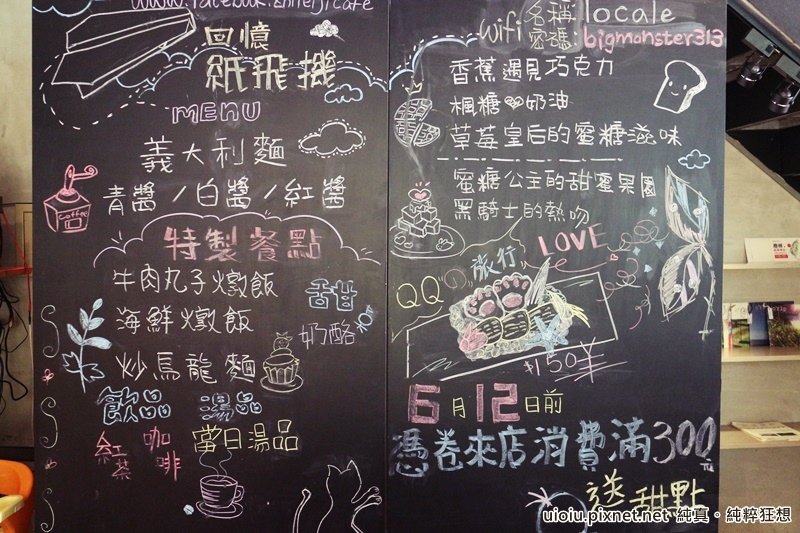 www.facebook.
回憶
紙飛機
MENU
義大利麵
青醬/白醬/紅醬
Coffee
特製餐點
牛肉丸子燉飯
海鮮燉飯
炒烏龍麵
甜
奶酪
飲品 湯品
紅茶 咖啡 當日湯品
wifi 名稱: locale
密碼: bigmonster313
香蕉遇見巧克力
楓糖♥奶油
草莓皇后的蜜糖滋味
蜜糖公主的甜蜜果園
黑騎士的熱吻
LOVE
QQの旅行
$150
6月12日前
憑卷來店消費滿300元
送甜點
uioiu.pixnet.net 純真。純粹狂想